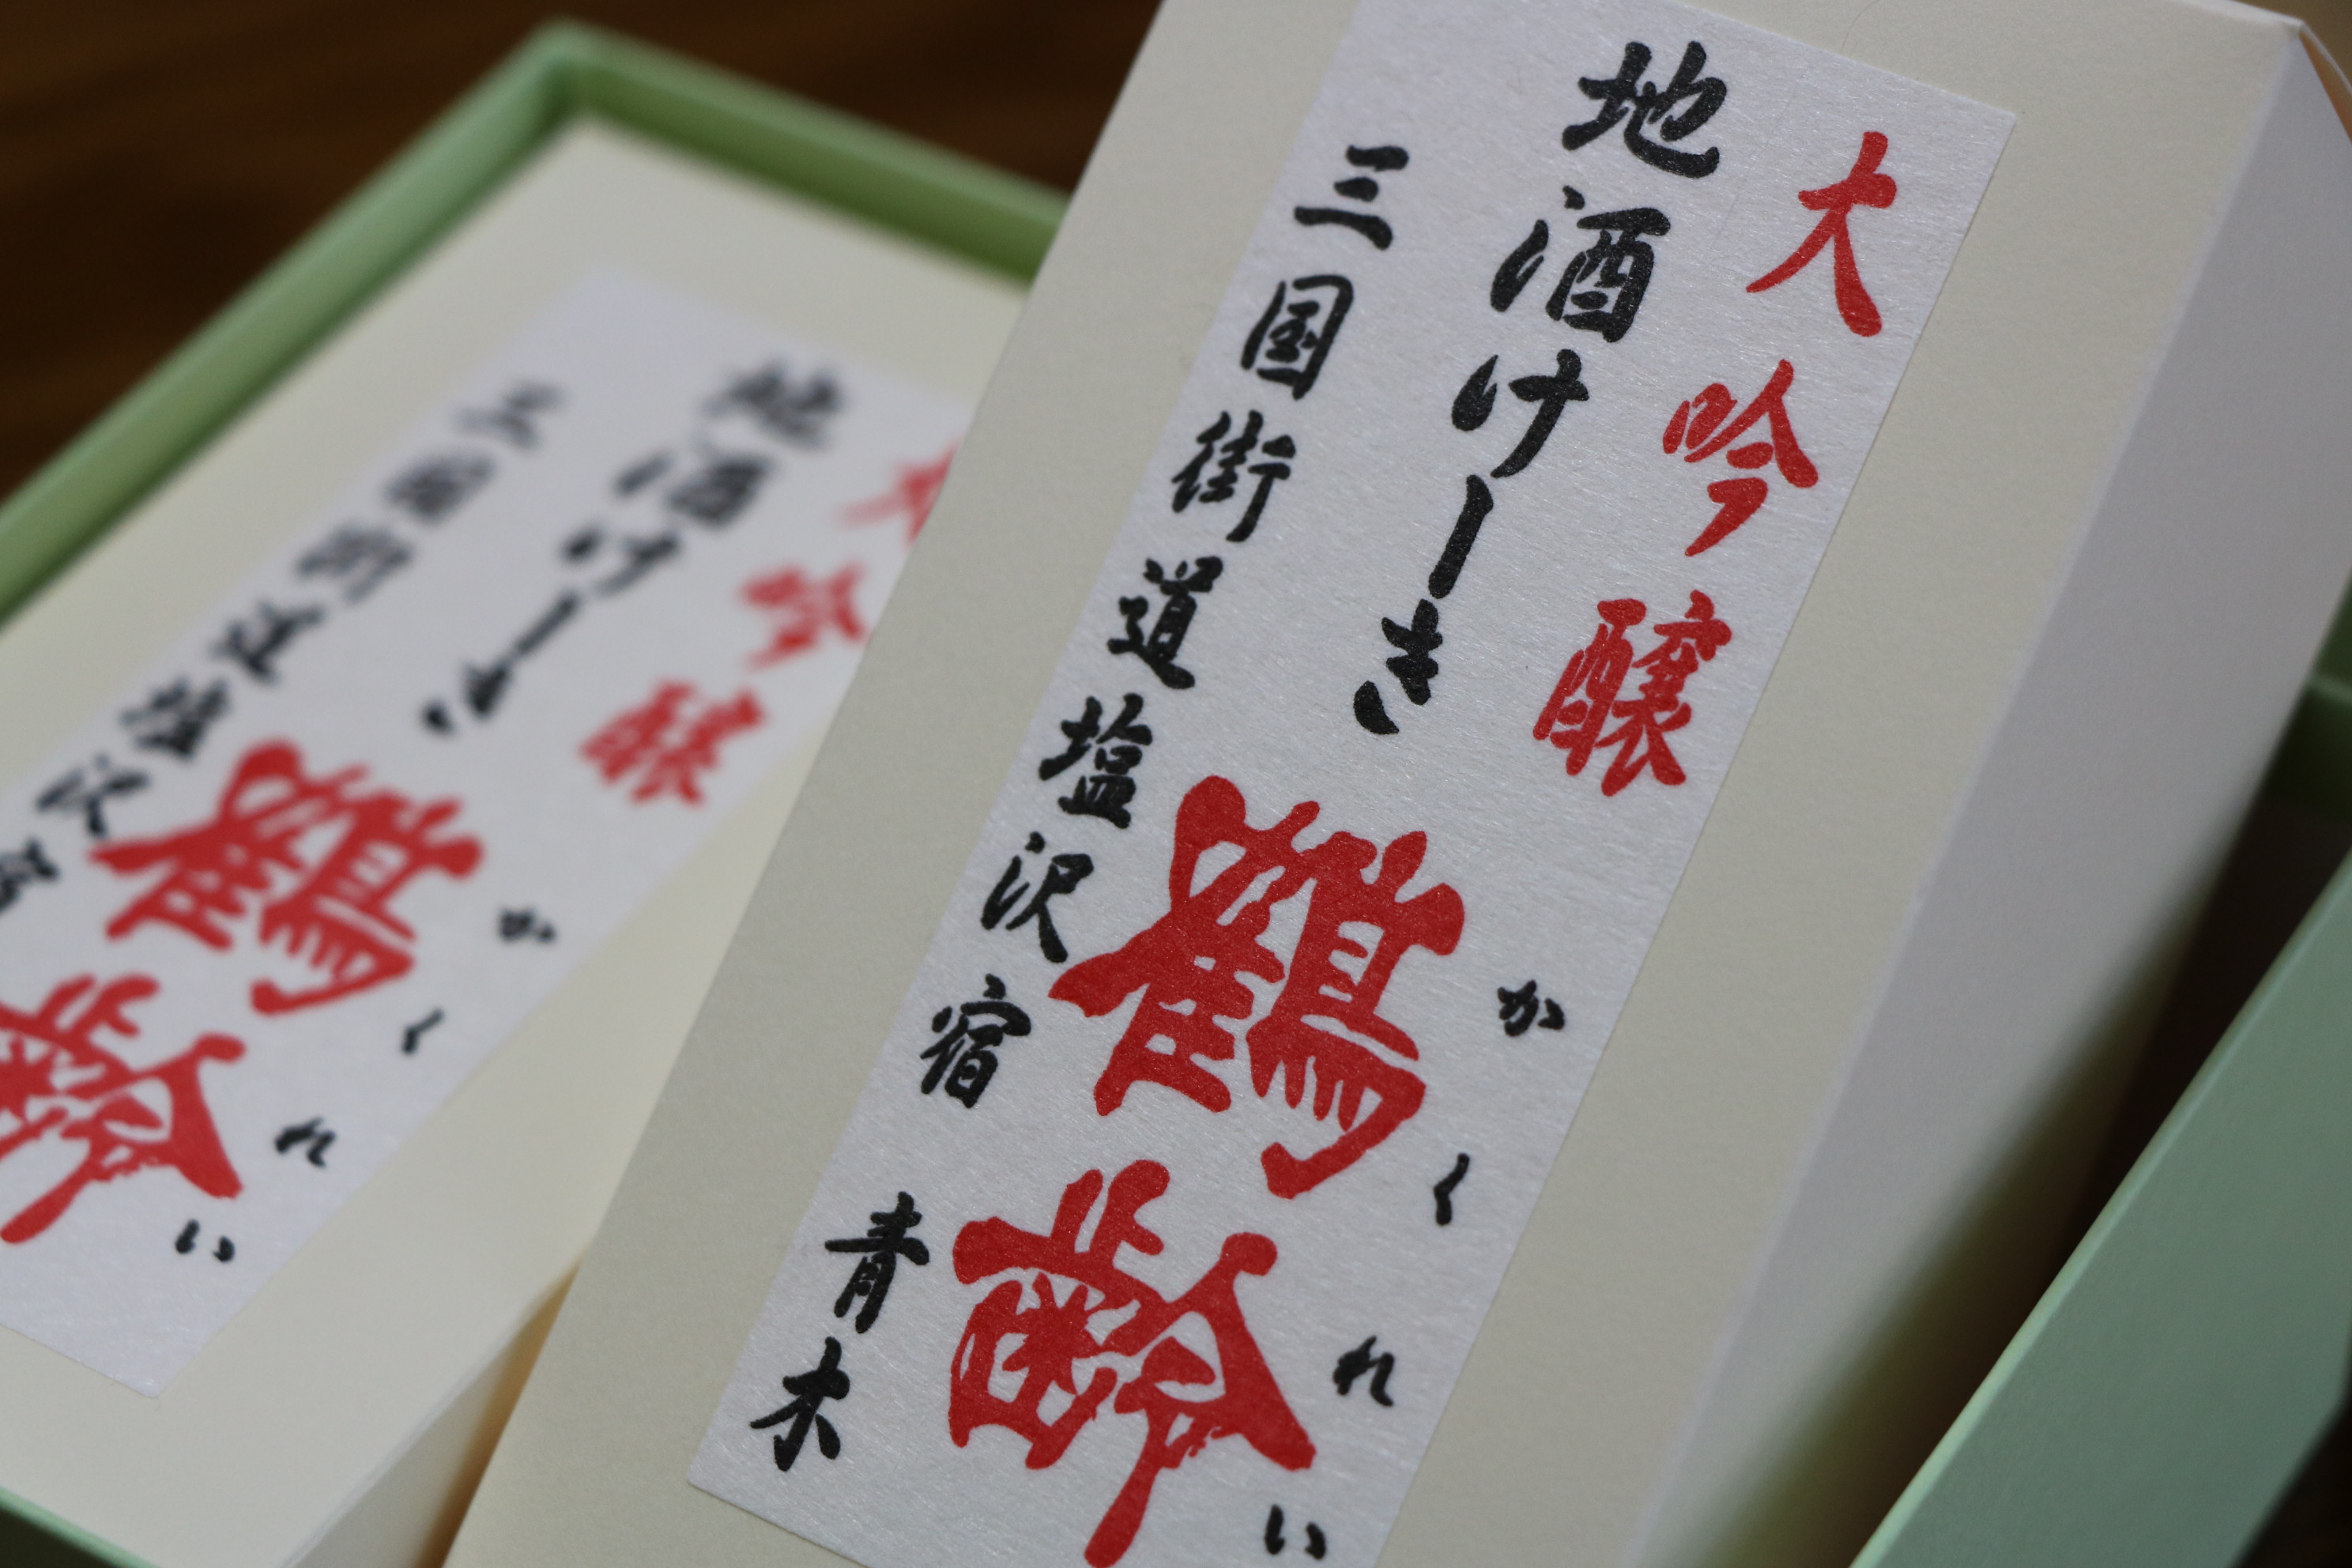 大吟醸
地酒けーき
かくれい
鶴齢
三国街道塩沢宿 青木
大吟醸
地酒けーき
かくれい
鶴齢
三国街道塩沢宿